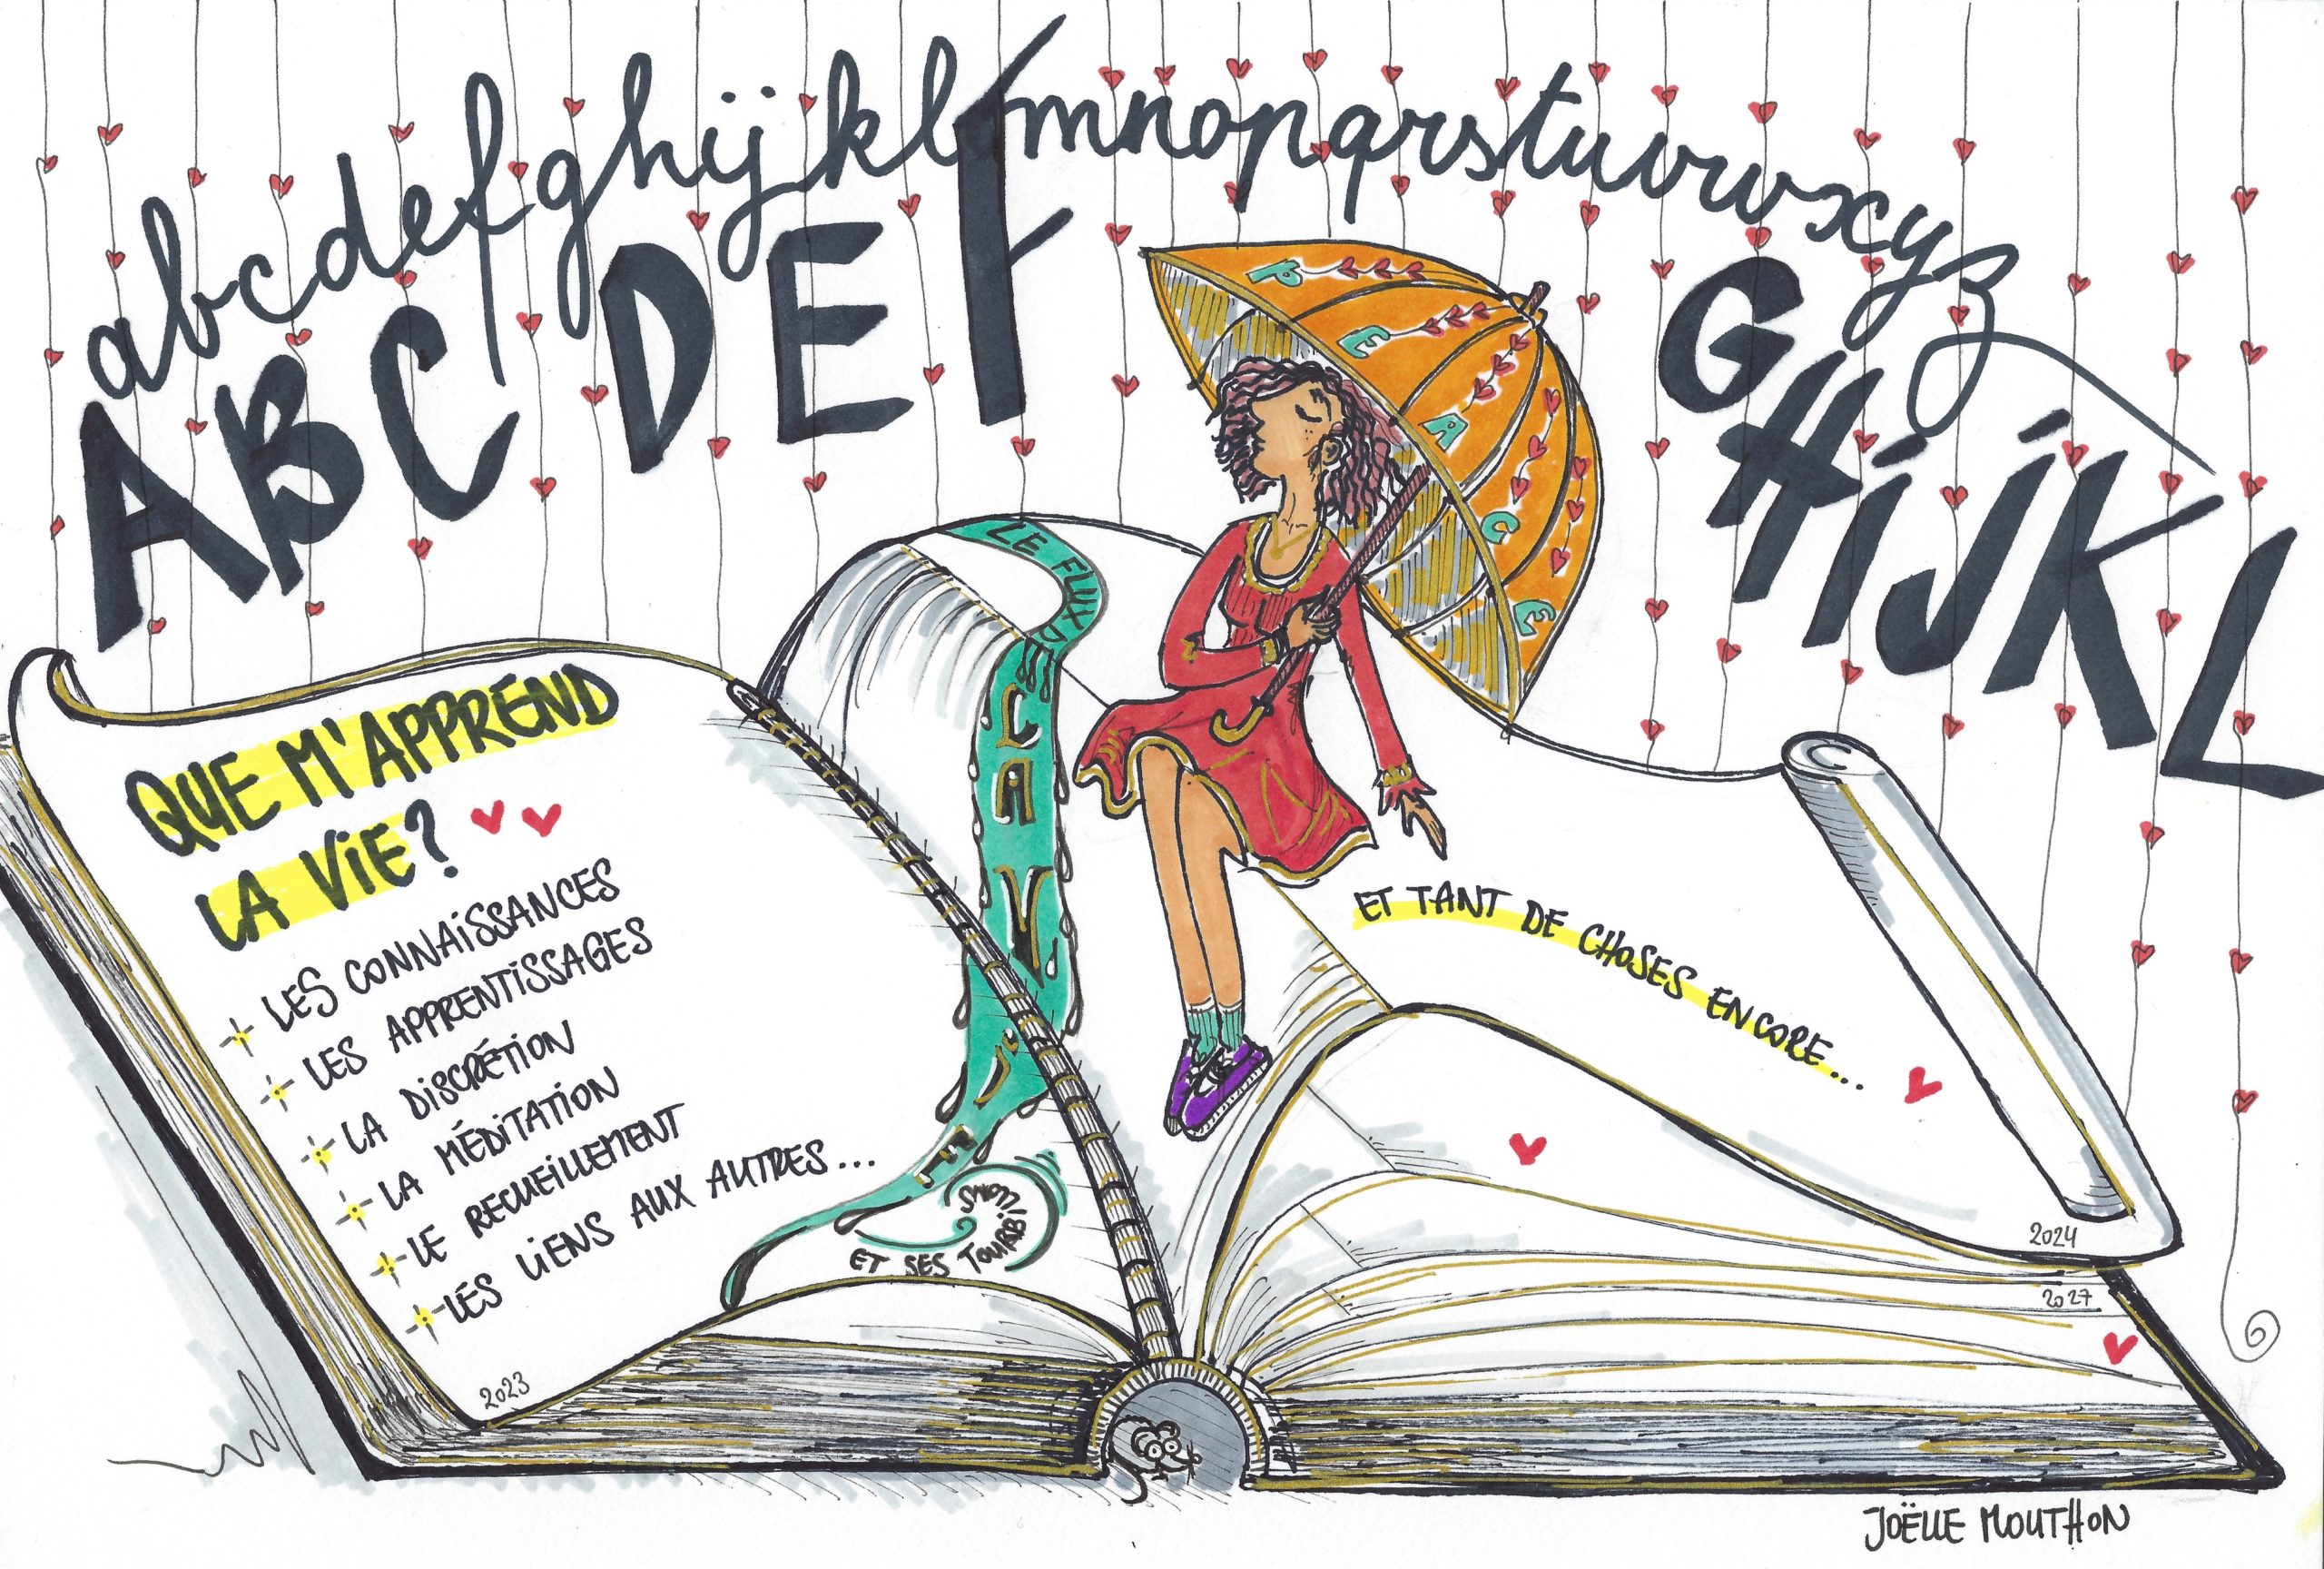 abcdefghijklmnopqrstuvwxyz
ABCDEF
GHIJKL
PEACE
LE FLUX DE
LA VIE
ET SES TOURBILLONS
QUE M'APPREND
LA VIE?
LES CONNAISSANCES
LES APPRENTISSAGES
LA DISCRÉTION
LA MÉDITATION
LE RECUEILLEMENT
LES LIENS AUX AUTRES...
2023
ET TANT DE CHOSES ENCORE...
2024
2027
JOËLLE MOUTHON